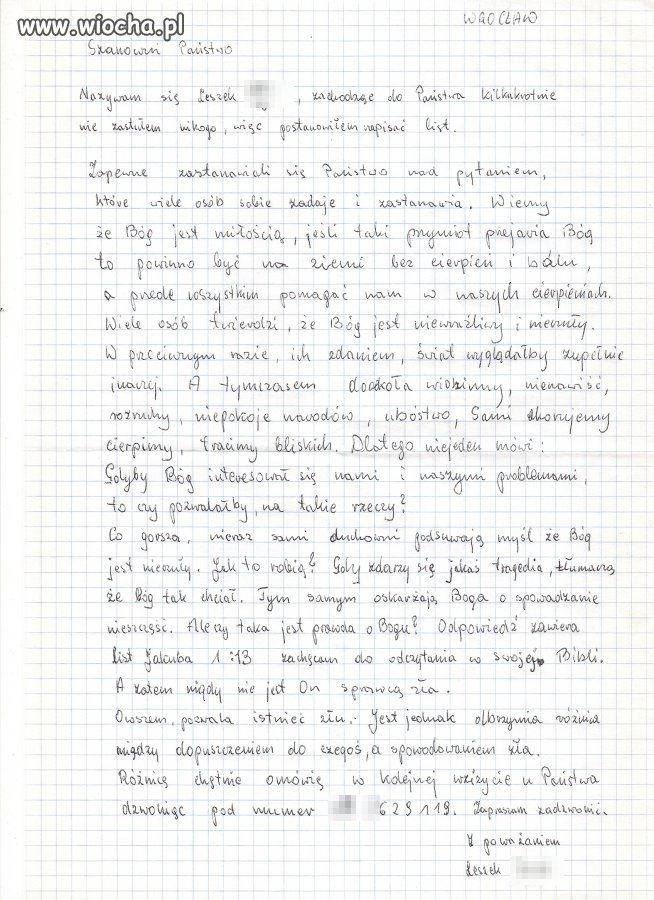 www.wiocha.pl
WROCŁAW
Szanowni Państwo
Nazywam się Leszek , zachodzęc do Państwa kilkakrotnie
nie zastałem nikogo, więc postanowiłem napisać list.
Zapewne zastanawiali się Państwo nad pytaniem,
które wiele osób sobie zadaje i zastanawia. Wiemy
że Bóg jest miłością, jeśli taki przymiot przejawia Bóg
to powinno być na ziemi bez cierpień i bólu,
a przede wszystkim pomagać nam w naszych cierpieniach.
Wiele osób twierdzi, że Bóg jest niewrażliwy i nieczuły.
W przeciwnym razie, ich zdaniem, świat wyglądałby zupełnie
inaczej. A tymczasem dookoła widzimy, nienawiść,
rozruchy, niepokoje narodów, ubóstwo, Sami chorujemy
cierpimy, tracimy bliskich. Dlatego niejeden mówi:
Gdyby Bóg interesował się nami i naszymi problemami,
to czy pozwalałby, na takie rzeczy?
Co gorsza, nieraz sami duchowni podsuwają myśl że Bóg
jest nieczuły. Jak to robią? Gdy zdarzy się jakaś tragedia, tłumaczą
że Bóg tak chciał. Tym samym oskarżają Boga o spowadzanie
nieszczęść. Ale czy taka jest prawda o Bogu? Odpowiedź zawiera
list Jakuba 1:13 zachęcam do odczytania w swojej Bibli.
A zatem nigdy nie jest On sprawcą zła.
Owszem, pozwala istnieć złu. Jest jednak olbrzymia różnica
między dopuszczeniem do czegoś, a spowodowaniem zła.
Różnicę chętnie omówię w kolejnej wizycie u Państwa
dzwoniąc pod numer 629119. Zapraszam zadzwonić.
Z poważaniem
Leszek